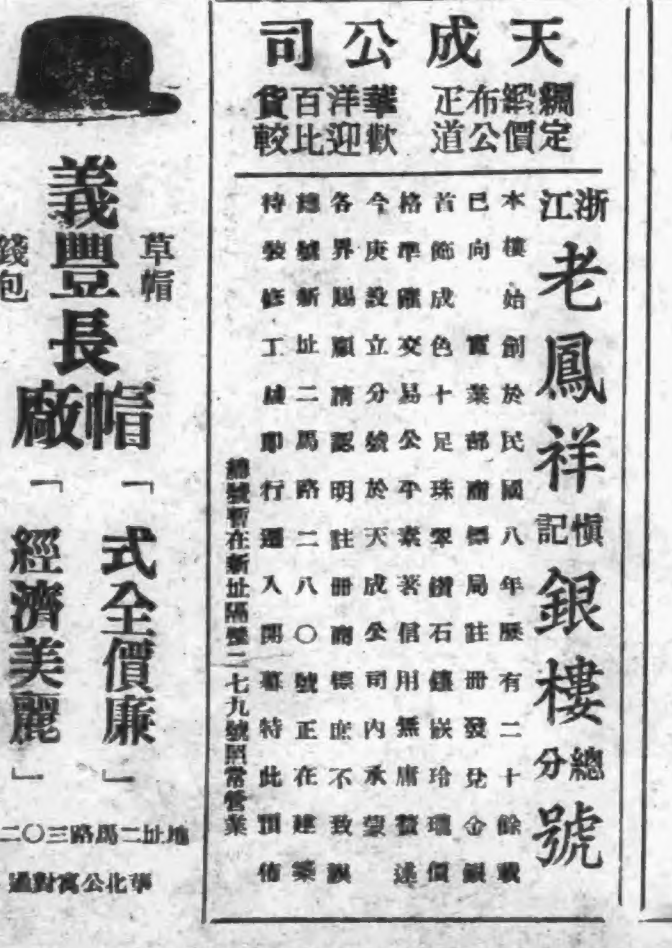 天成公司
綢緞布疋 華洋百貨
定價公道 歡迎比較
浙江老鳳祥慎記銀樓總分號
本樓始創於民國八年歷有二十餘載
已向 實業部商標局註冊發兌金銀
首飾成色十足珠翠鑽石鑲嵌玲瓏價
格準確交易公平素著信用無庸贅述
今庚設立分號於天成公司內承蒙
各界賜顧請認明註冊商標庶不致誤
總號新址二馬路二八〇號正在建築
待裝修工竣即行遷入開幕特此預佈
總號暫在新址隔壁二七九號照常營業
草帽
義豊長帽廠
錢包
「式全價廉」
「經濟美麗」
地址二馬路三〇二
華北公寓對過